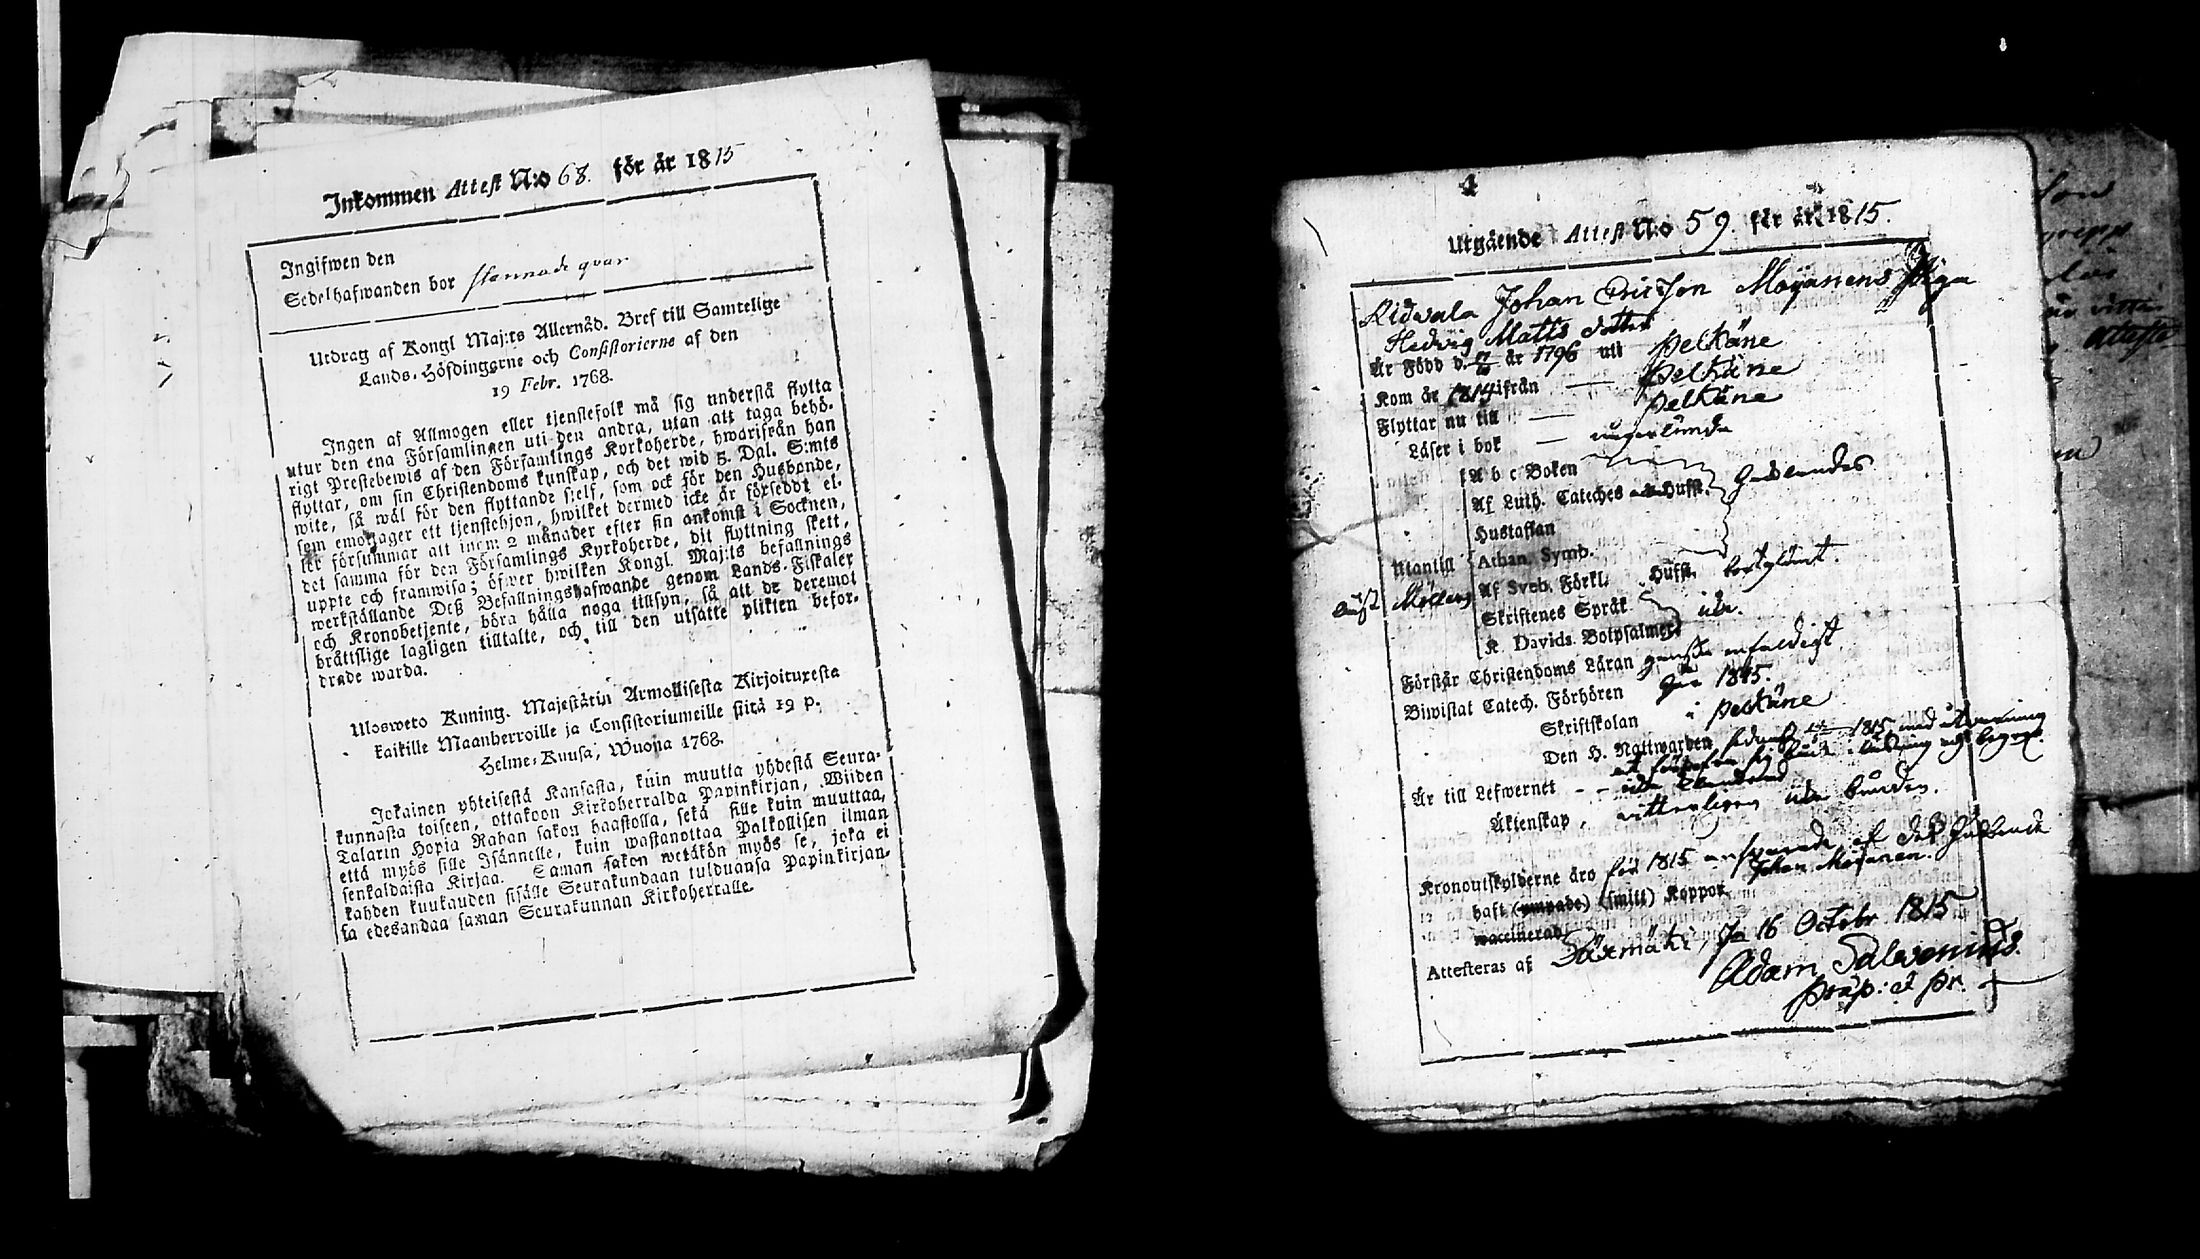 Inkommen Attest N:o 68. för år 1815
Ingifwen den
Sedelhafwanden bor stannade qvar
Utdrag af Kongl Maj:ts Allernåd. Bref till Samtelige
Lands-Höfdingarne och Consistorierne af den
19 Febr. 1768.
Ingen af Allmogen eller tjenstefolk må sig understå flytta
utur den ena Församlingen uti den andra, utan att taga behö-
rigt Prestebewis af den Församlings Kyrkoherde, hwarifrån han
flyttar, om sin Christendoms kunskap, och det wid 5. Dal. S:mts
wite, så wäl för den flyttande sjelf, som ock för den Husbonde,
som emottager ett tjenstehjon, hwilket dermed icke är förseddt el-
ler försummar att inom 2 månader efter sin ankomst i Socknen,
det samma för den Församlings Kyrkoherde, dit flyttning skett,
uppte och framwisa; öfwer hwilken Kongl. Maj:ts befallnings
werkställande Deß Befallningshafwande genom Lands-Fiskaler
och Kronobetjente, böra hålla noga tillsyn, så att de deremot
bråttslige lagligen tilltalte, och till den utsatte plikten befor-
drade warda.
Ulosweto Kuning. Majestätin Armollisesta Kirjoituxesta
kaikille Maanherroille ja Consistoriumeille siitä 19 p.
Helme-Kuusa, Wuona 1768.
Jokainen yhteisestä Kansasta, kuin muutta yhdestä Seura-
kunnasta toiseen, ottakoon Kirkoherralda Papinkirjan, Wiiden
Talarin Hopia Rahan sakon haastolla, sekä sille kuin muuttaa,
että myös sille Isännelle, kuin wastanottaa Palkollisen ilman
senkaldaista Kirjaa. Saman sakon wetäkön myös se, joka ei
kahden kuukauden sisälle Seurakundaan tulduansa Papinkirjan-
sa edesandaa saman Seurakunnan Kirkoherralle.
Utgående Attest N:o 59 för år 1815.
Ridvala Johan Ericsson Moijanens Piga
Hedvig Matts dotter
Är Född d. år 1796 uti Pelkäne
Kom år 1814 ifrån — Pelkäne
Flyttar nu till — Pelkäne
Läser i bok —
A b c Boken
Af Luth. Cateches Hufst.
Hustaflan
Utantill Athan. Symb.
Af Sveb. Förkl. Hufst. bortglömt.
Skriftenes Språk
K. Davids Botpsalmer
Förstår Christendoms Läran ganska enfaldigt
Biwistat Catech. Förhören här 1815.
Skriftskolan i Pelkäne
Den H. Nattwarden 1815
Är till Lefwernet - -
Äktenskap,
Kronoutskylderne äro för 1815
Johan Moijanen.
haft (ympade) (smitt) Koppor
waccinerad
Attesteras af Sääxmäki, Ja 16 Octobr 1815
Adam Salvenius.
Præp: et Pr.